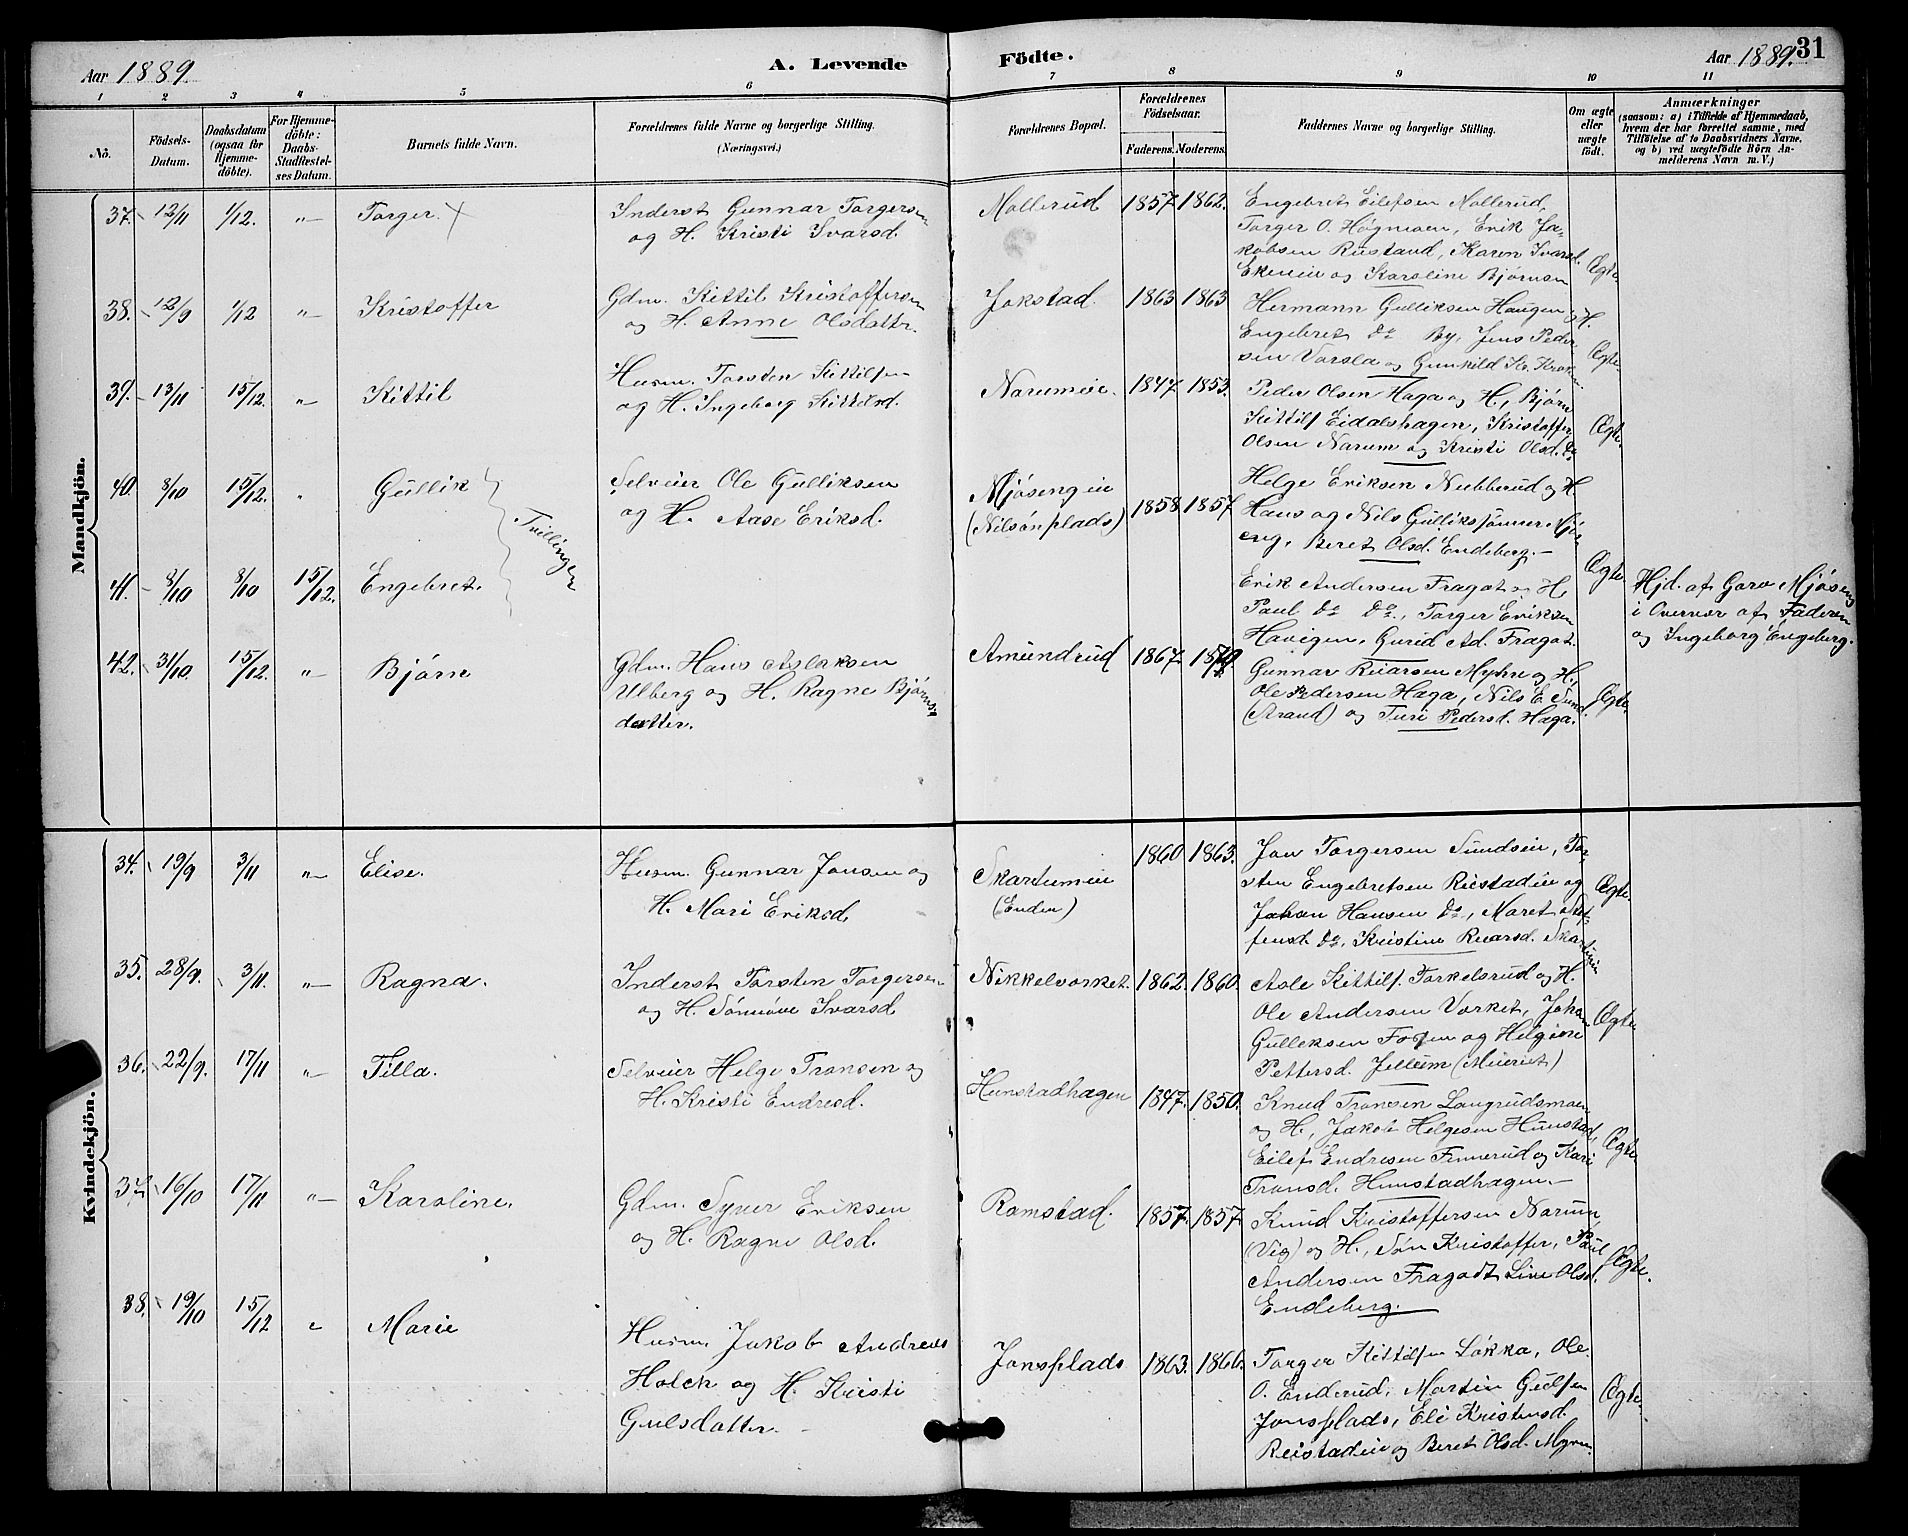 Aar 1889.
A. Levende
Födte.
Aar 1889.
31
1 2 3 4 5 6 7 8 9 10 11
No.
Födsels-
Datum.
Daabsdatum
(ogsaa for
Hjemme-
döbte).
For Hjemme-
döbte:
Daabs-
Stadfæstel-
ses Datum.
Barnets fulde Navn.
Forældrenes fulde Navne og borgerlige Stilling.
(Næringsvei.)
Forældrenes Bopæl.
Forældrenes
Födselsaar.
Faderens. Moderens.
Faddernes Navne og borgerlige Stilling.
Om ægte
eller
uægte
födt.
Anmærkninger
(saasom: a) i Tilfælde af Hjemmedaab,
hvem der har forrettet samme, med
Tilföielse af to Daabsvidners Navne,
og b) ved uægtefödte Börn An-
melderens Navn m. V.)
Mandkjön.
37. 12/11 1/12. „ Torger. X
Inderst Gunnar Torgersen
og H. Kristi Ivarsd.
Mollerud 1857 1862.
Engebret Eilefsen Mollerud,
Torger O. Høgmoen, Erik Ja-
kobsen Rustand, Karen Ivarsd.
Ekeneie og Karoline Bjørnsen
Ægte.
38. 12/9 1/12 „ Kristoffer
Gdm. Kittil Kristoffersen
og H. Anne Olsdatter.
Jokstad. 1863 1863
Hermann Gulliksen Haugen og H.
Engebret do By, Jens Peder-
sen Vorsla og Gunhild
Ægte.
39. 13/11 15/12. „ Kittil
Husm. Torsten Kittilsen
og H. Ingeborg Kittilsd.
Narumeie. 1847 1853.
Peder Olsen Haga og H., Bjørn
Kittils. Eidalshagen, Kristoffer
Olsen Narum og Kristi Olsd. do
Ægte
40. 8/10 15/12. „ Gullik
Tvillinger
Selveier Ole Gulliksen
og H. Aase Eriksd.
Mjøsengeie
(Nilsønplads) 1858 1857
Helge Eriksen Nubberud og H
Hans og Nils Gulliksønner Mjøs-
eng, Beret Olsd. Endeberg.
Ægte
41. 8/10 8/10 15/12. Engebret.
Erik Andersen Fragot og H
Paul do do, Torger Eriksen
Havigen, Gurid Ad. Fragot.
Hjd. af Garo Mjøseng
i Overvær af Faderen
og Ingeborg Engeberg.
42. 31/10. 15/12. „ Bjørn
Gdm. Hans Aslaksen
Ulberg og H. Ragne Bjørns-
datter.
Amundrud 1867.
Gunnar Ruarsen Myhre og H.,
Ole Pedersen Haga, Nils E. Sund
(Strand) og Turi Pedersd. Haga.
Ægte.
Kvindekjön.
34. 19/9 3/11 „ Elise.
Husm. Gunnar Jonsen og
H. Mari Eriksd.
Skartumeie
(Enden)
1860 1863.
Jon Torgersen Sundseie, Tor-
sten Engebretsen Rustadeie og
Johan Hansen do, Maret Stef-
fensd. do, Kristine Ruarsd. Skartumeie
Ægte.
35. 28/9. 3/11. „ Ragna.
Inderst Torsten Torgersen
og H. Sønnøve Ivarsd
Nikkelverket. 1862. 1860.
Asle Kittils. Torkelsrud og H.
Ole Andersen Værket, Johan
Gulleksen Fossen og Helgine
Pettersd. Jellum (Meieriet)
Ægte
36. 22/9. 17/11 „ Tilla.
Selveier Helge Transen og
H. Kristi Endresd.
Hunstadhagen 1847. 1850.
Knud Transen Langrudsmoen
og H., Jakob Helgesen Hunstad,
Eilef Endresen Finnerud og Kari
Transd. Hunstadhagen.
Ægte
37. 16/10 17/11 „ Karoline.
Gdm. Syver Eriksen
og H. Ragne Olsd.
Ramstad. 1857. 1857.
Knud Kristoffersen Narum
(Vig) og H., Søn Kristoffer, Paul
Andersen Fragodt, Live Olsd.
Endeberg.
Ægte.
38. 19/10 15/12 „ Marie
Husm. Jakob Andreas
Holck og H. Kristi
Gulsdatter.
Jonsplads 1863. 1866.
Torger Kittilsen Løkka, Ole
O. Enderud, Martin Gulsen
Jonsplads, Eli Kristensd.
Rustadeie og Beret Olsd. Myren
Ægte.